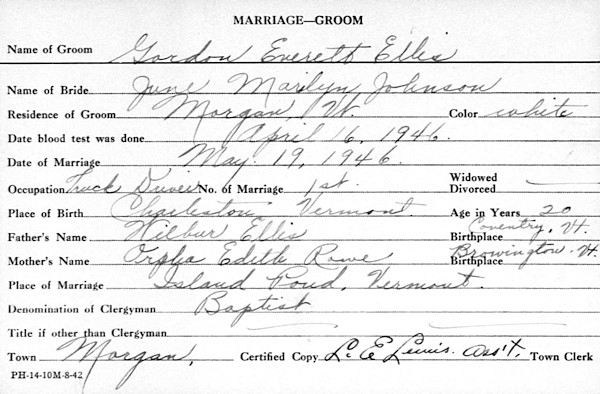 MARRIAGE—GROOM
Name of Groom Gordon Everett Ellis
Name of Bride June Marilyn Johnson
Residence of Groom Morgan, Vt. Color white
Date blood test was done April 16, 1946.
Date of Marriage May 19, 1946.
Occupation Truck Driver No. of Marriage 1st. Widowed Divorced
Place of Birth Charleston Vermont. Age in Years 20
Father's Name Wilbur Ellis Birthplace Coventry, Vt.
Mother's Name Orpha Edith Rowe Birthplace Browington Vt.
Place of Marriage Island Pond, Vermont.
Denomination of Clergyman Baptist
Title if other than Clergyman
Town Morgan, Certified Copy L. E. Lewis. ass't. Town Clerk
PH-14-10M-8-42